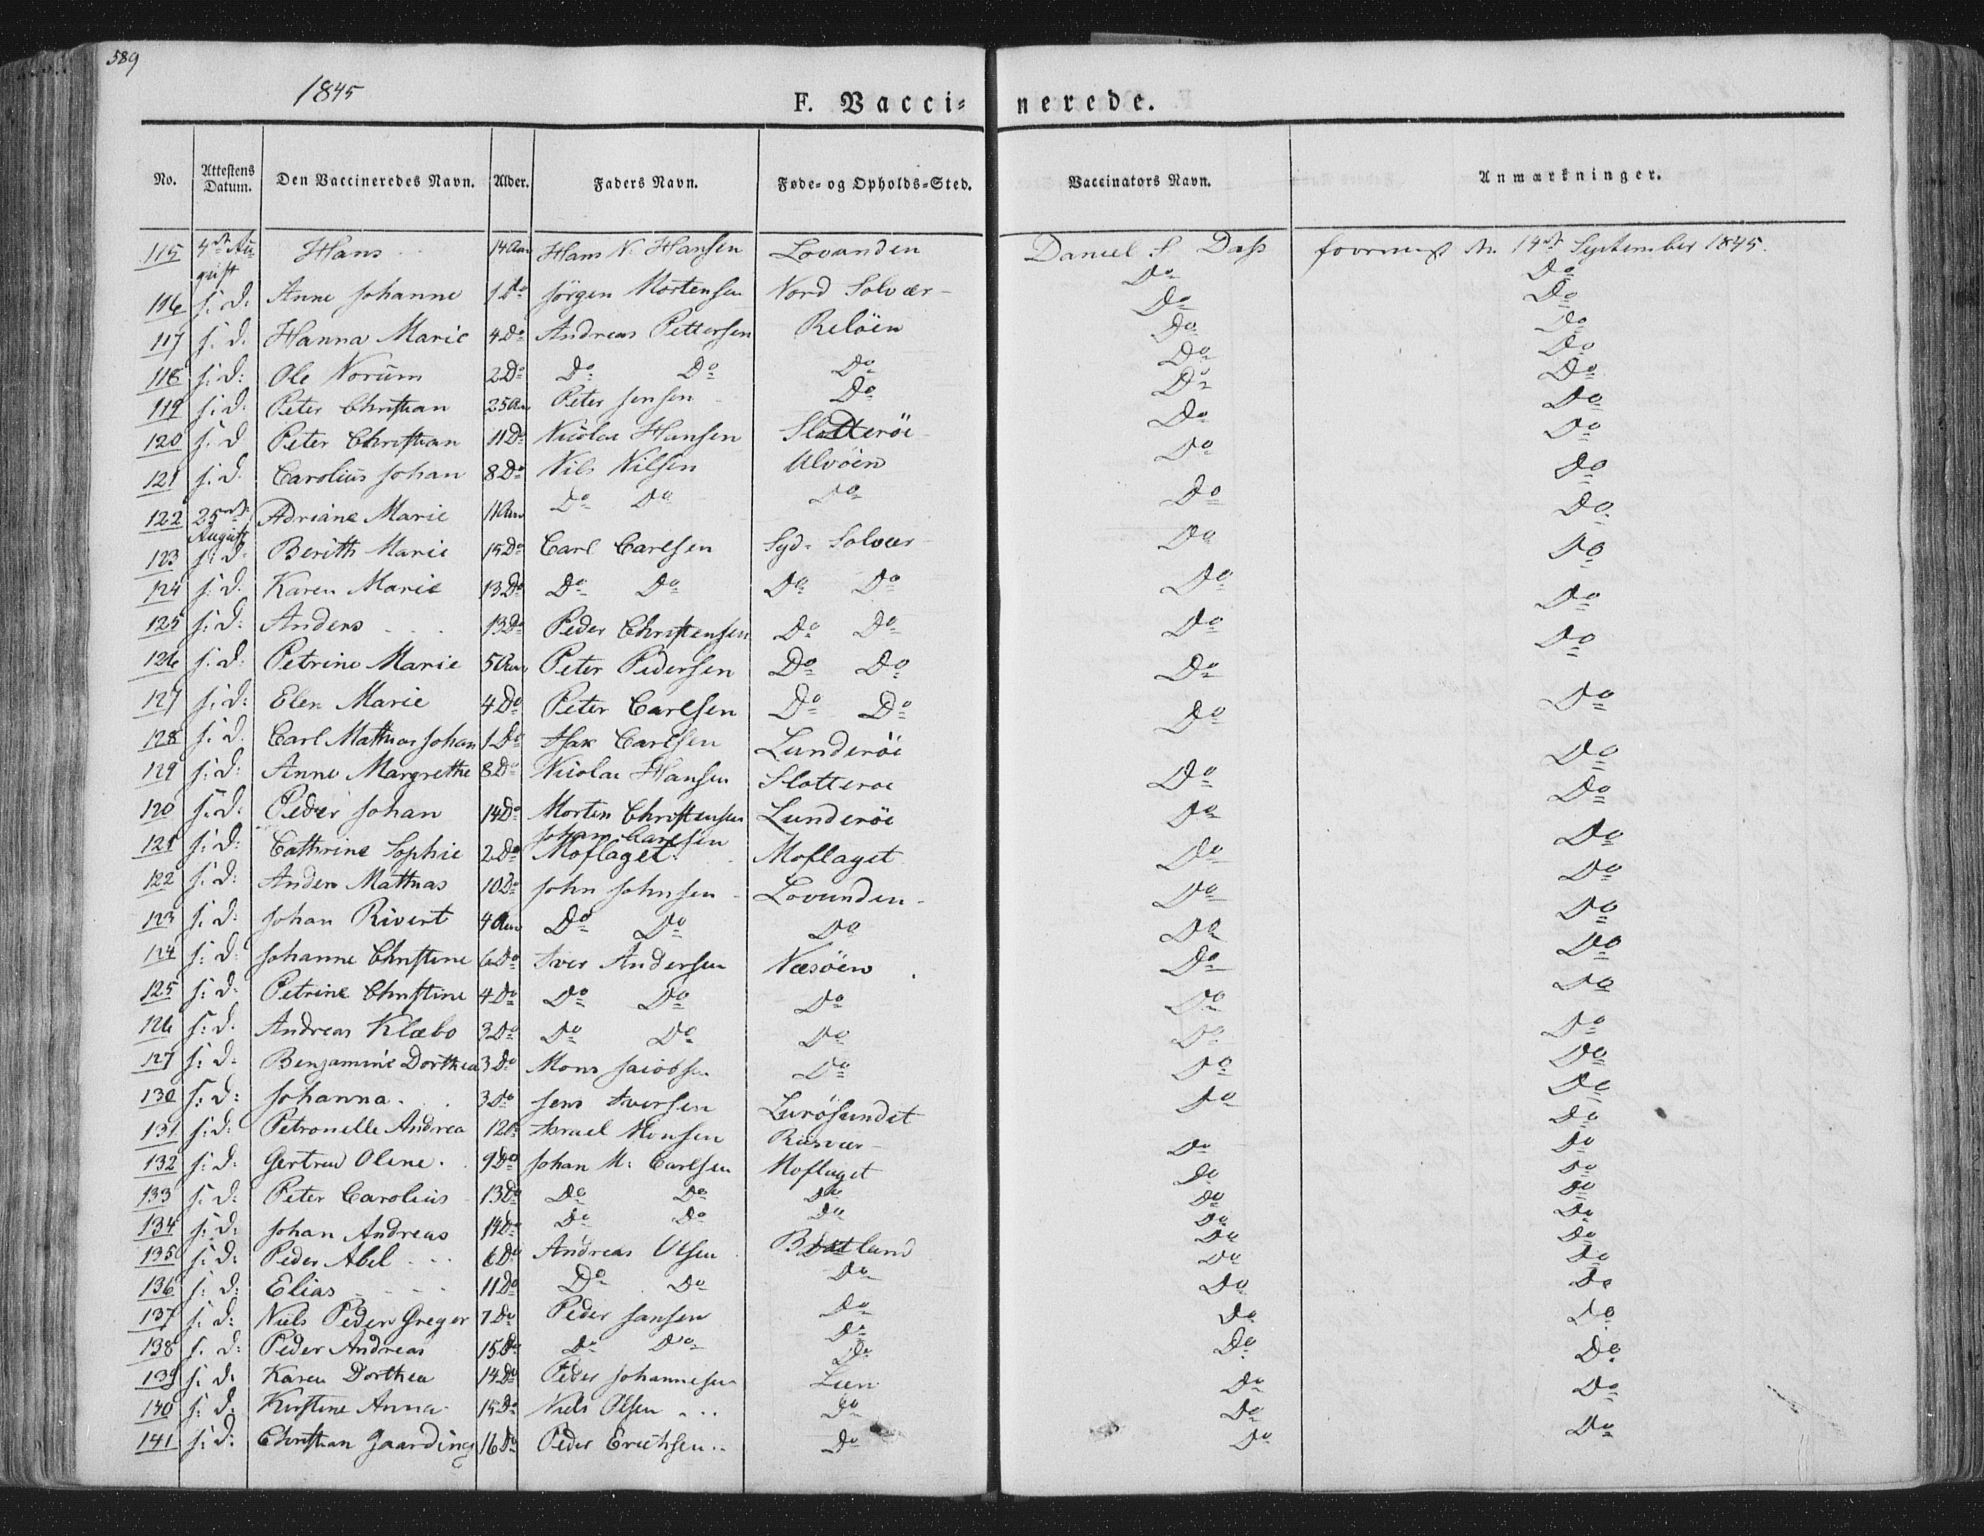 589
1845
F. Vacci- nerede.
No. Attestens Datum. Den Vaccineredes Navn. Alder. Faders Navn. Føde- og Opholds-Sted. Vaccinators Navn. Anmærkninger.
115 4de August Hans 14 Aar Hans N. Hansen Lovunden Daniel S Dass foreviist den 14de September 1845.
116 s: d: Anne Johanne 1 Do Jörgen Mortensen Nord Solvær Do Do
117 s: d: Hanna Marie 4 Do Andreas Pettersen Relöen Do Do
118 s: d: Ole Norum 2 Do Do Do Do Do Do
119 s: d: Peter Christian 25 Aar Peter Jensen Do Do Do
120 s: d Peter Christian 11 Do Nicolai Hansen Slotteröe Do Do
121 s: d. Carolius Johan 8 Do Nils Nilsen Alvöen Do Do
122 25de August Adriane Marie 11 Aar Do Do Do Do Do
123 s: d: Berith Marie 15 Do Carl Carlsen Syd. Solvær Do Do
124 s: d: Karen Marie 13 Do Do Do Do Do Do Do
125 s: d: Anders 13 Do Peder Christensen Do Do Do Do
126 s: d: Petrine Marie 5 Aar Peter Pedersen Do Do Do Do
127 s: d: Elen Marie 4 Do Peter Carlsen Do Do Do Do
128 s: d. Carl Mathias Johan 1 Do Isax Carlsen Lunderöe Do Do
129 s: d: Anne Margrethe 8 Do Nicolai Hansen Slotteröe Do Do
120 s: d: Peder Johan 14 Do Morten Christensen Lunderöe Do Do
121 s: d: Cathrine Sophie 2 Do Johan Carlsen Moflaget Moflaget Do Do
122 s: d: Anders Mathias 10 Do John Johnsen Lovunden Do Do
123 s: d: Johan Rivert 4 Aar Do Do Do Do Do
124 s: d: Johanne Christine 6 Do Iver Andersen Næsöen Do Do
125 s: d: Petrine Christine 4 Do Do Do Do Do Do
126 s: d. Andreas Klæbo 3 Do Do Do Do Do Do
127 s: d: Benjamine Dorthea 3 Do Mons Jacobsen Do Do Do
130 s: d: Johanna 3 Do Jens Iversen Luröesundet Do Do
131 s: d: Petronelle Andrea 12 Do Israel Monsen Do Do
132 s: d: Gertrud Oline 9 Do Johan M. Carlsen Moflaget Do Do
133 s: d: Peter Carolius 13 Do Do Do Do Do Do
134 s: d: Johan Andreas 14 Do Do Do Do Do Do
135 s: d: Peder Abel 6 Do Andreas Olsen Do Do
136 s: d: Elias 11 Do Do Do Do Do Do
137 s: d: Niels Peder Greger 7 Do Peder Jansen Do Do Do
138 s. d: Peder Andreas 15 Do Do Do Do Do Do
139 s: d: Karen Dorthea 14 Do Peder Johannesen Do Do Do
140 s: d: Kirstine Anna 15 Do Niels Olsen Lun Do Do Do
141 s: d: Christian Gaarding 16 Do Peder Erichsen Do Do Do